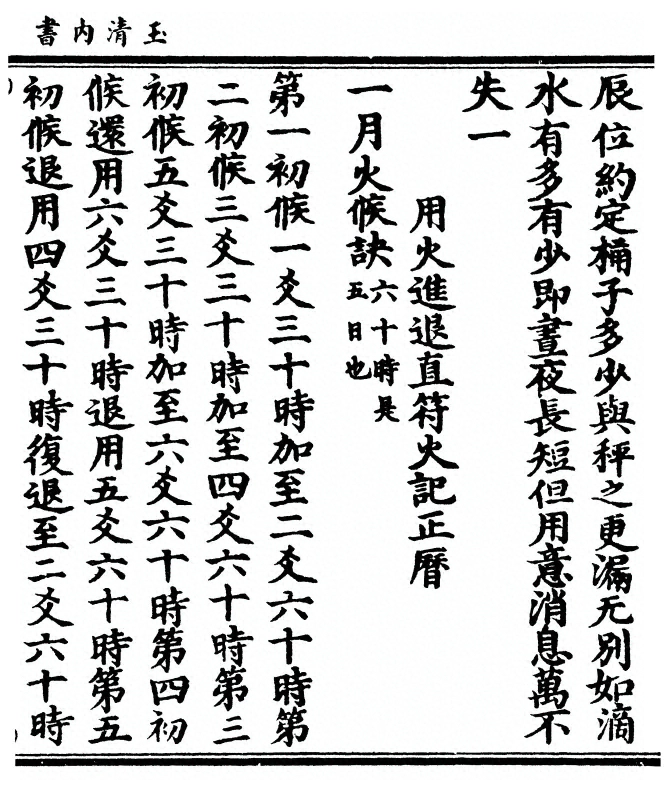 玉清內書
辰位約定桶子多少與秤之更漏无別如滴
水有多有少即晝夜長短但用意消息萬不
失一
用火進退直符火記正曆
一月火候訣六十時是五日也
第一初候一爻三十時加至二爻六十時第
二初候三爻三十時加至四爻六十時第三
初候五爻三十時加至六爻六十時第四初
候還用六爻三十時退用五爻六十時第五
初候退用四爻三十時復退至二爻六十時